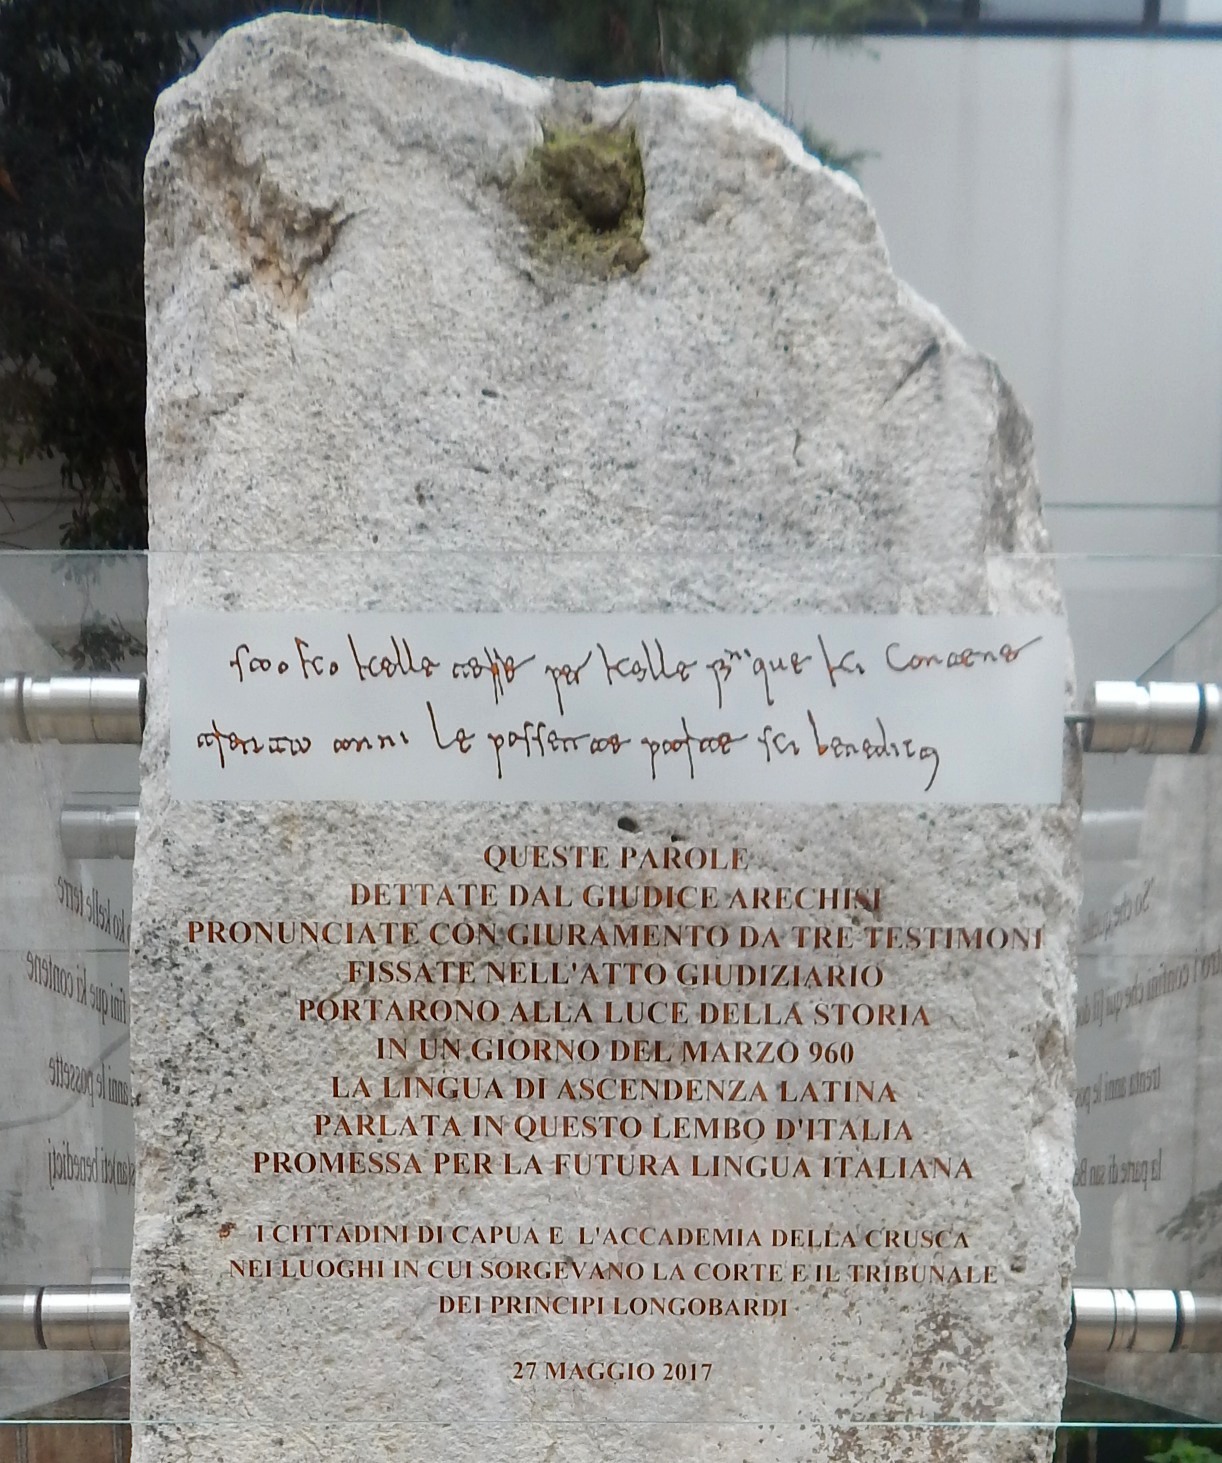 sao ko kelle terre per kelle fini que ki contene
trenta anni le possette parte sci benedicti
QUESTE PAROLE
DETTATE DAL GIUDICE ARECHISI
PRONUNCIATE CON GIURAMENTO DA TRE TESTIMONI
FISSATE NELL'ATTO GIUDIZIARIO
PORTARONO ALLA LUCE DELLA STORIA
IN UN GIORNO DEL MARZO 960
LA LINGUA DI ASCENDENZA LATINA
PARLATA IN QUESTO LEMBO D'ITALIA
PROMESSA PER LA FUTURA LINGUA ITALIANA
I CITTADINI DI CAPUA E L'ACCADEMIA DELLA CRUSCA
NEI LUOGHI IN CUI SORGEVANO LA CORTE E IL TRIBUNALE
DEI PRINCIPI LONGOBARDI
27 MAGGIO 2017
ko kelle terre
fini que ki contene
anni le possette
benedicti
So che
confini che qui
trenta anni le
la parte di san